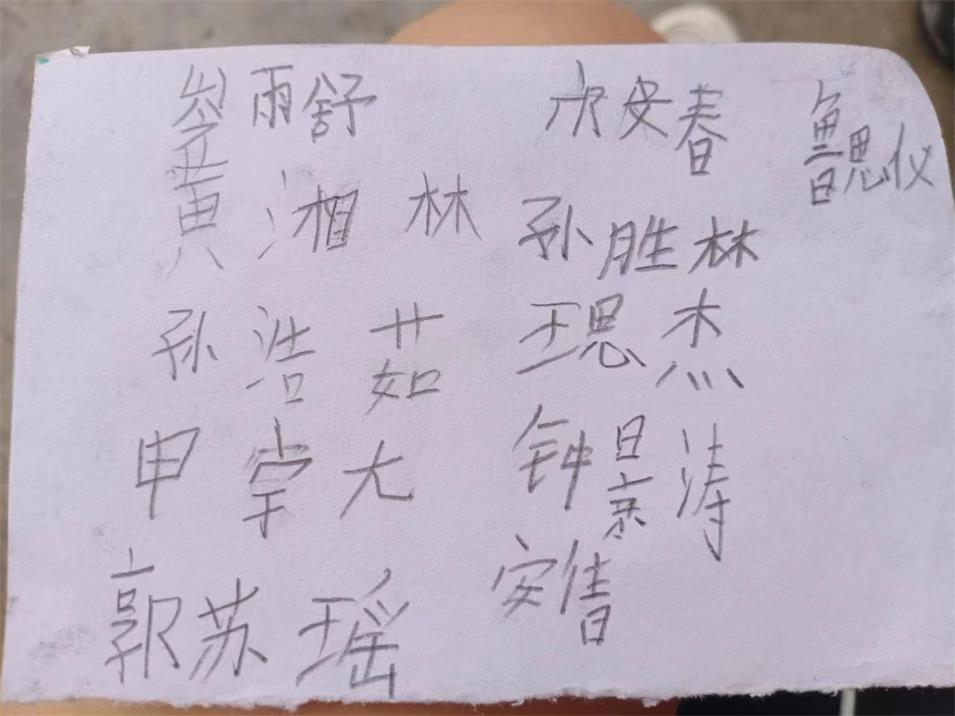 雨舒
黄湘林
孙浩茹
申掌尤
郭苏瑶
安春
鲁思仪
孙胜林
王思杰
钟景涛
安倩